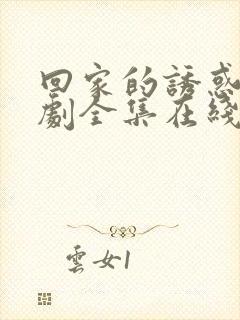 回家的誘惑
劇全集在綫
雲女1